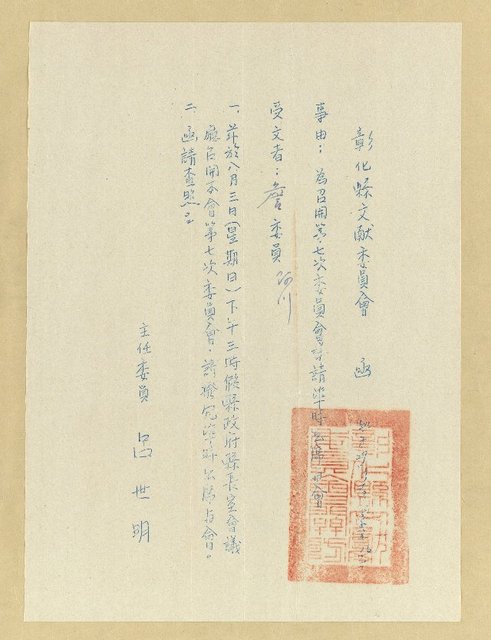 彰化縣文献委員會　函
事由：為召開第七次委員會議請準時出席
受文者：詹委員
一、茲於八月三日（星期日）下午三時假縣政府縣長室會議
廳召開本會第七次委員會，請撥冗準時出席與會。
二、函請查照。
主任委員　呂世明